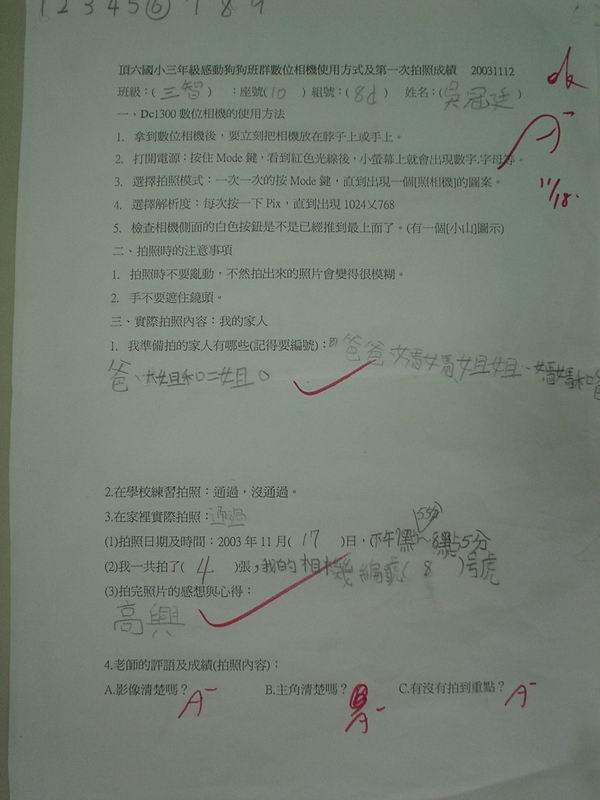 1 2 3 4 5 6 7 8 9
頂六國小三年級感動狗狗班群數位相機使用方式及第一次拍照成績 20031112
ok
班級：(三智) ：座號(10) 組號：(8d) 姓名：(吳冠廷)
A-
11/18.
一、Dc1300 數位相機的使用方法
1. 拿到數位相機後，要立刻把相機放在脖子上或手上。
2. 打開電源：按住 Mode 鍵，看到紅色光線後，小螢幕上就會出現數字.字母等。
3. 選擇拍照模式：一次一次的按 Mode 鍵，直到出現一個[照相機]的圖案。
4. 選擇解析度：每次按一下 Pix，直到出現 1024╳768
5. 檢查相機側面的白色按鈕是不是已經推到最上面了。(有一個[小山]圖示)
二、拍照時的注意事項
1. 拍照時不要亂動，不然拍出來的照片會變得很模糊。
2. 手不要遮住鏡頭。
三、實際拍照內容：我的家人
1. 我準備拍的家人有哪些(記得要編號)：爸爸媽媽姐姐、媽媽和爸
爸、大姐和二姐。
2.在學校練習拍照：通過，沒通過。
3.在家裡實際拍照：通過
(1)拍照日期及時間：2003 年 11 月( 17 )日，下午7點55分~8點55分
(2)我一共拍了( 4 )張，我的相機編號( 8 )号虎
(3)拍完照片的感想與心得：
高興
4.老師的評語及成績(拍照內容)：
A.影像清楚嗎？ B.主角清楚嗎？ C.有沒有拍到重點？
A- B A- A-